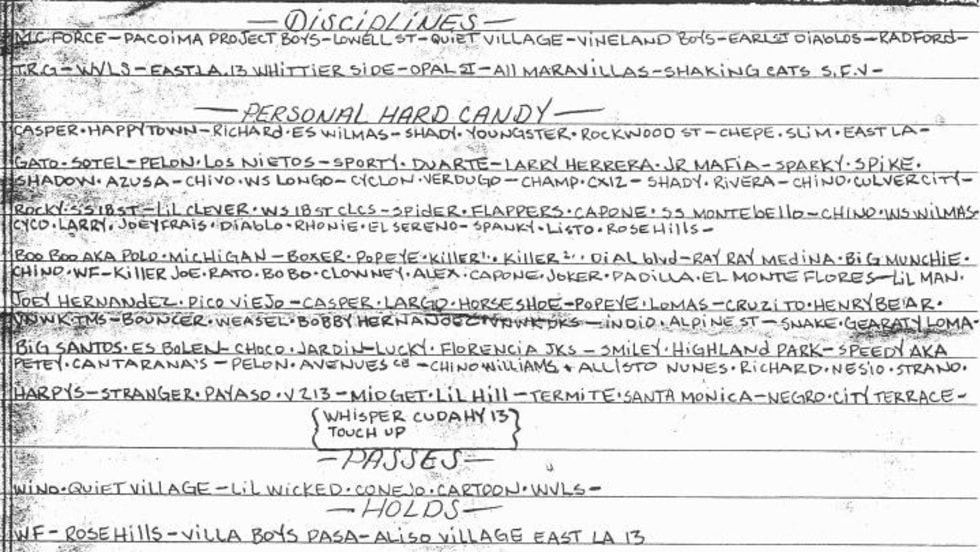 —DISCIPLINES—
M.C. FORCE—PACOIMA PROJECT BOYS—LOWELL ST—QUIET VILLAGE—VINELAND BOYS—EARL ST DIABLOS—RADFORD—
T.R.G—WVLS—EAST LA. 13 WHITTIER SIDE—OPAL ST—All MARAVILLAS—SHAKING CATS S.F.V—
—PERSONAL HARD CANDY—
CASPER·HAPPYTOWN—RICHARD·ES WILMAS—SHADY·YOUNGSTER·ROCKWOOD ST—CHEPE·SLIM·EAST LA—
GATO·SOTEL—PELON·LOS NIETOS—SPORTY·DUARTE—LARRY HERRERA·JR MAFIA—SPARKY·SPIKE·
SHADOW·AZUSA—CHIVO·WS LONGO—CYCLON·VERDUGO—CHAMP·CX12—SHADY·RIVERA—CHINO·CULVER CITY—
ROCKY·SS 18 ST—LIL CLEVER·WS 18 ST CLCS—SPIDER·FLAPPERS·CAPONE·SS MONTEbELLO—CHINO·WS WILMAS—
CYCO·LARRY·JOEY FRAIS·DIABLO·RHONIE·EL SERENO—SPANKY·LISTO·ROSE HILLS—
BOO BOO AKA POLO·MICHIGAN—BOXER·POPEYE·KILLER 1·KILLER 2··DIAL blvd—RAY RAY MEDINA·BIG MUNCHIE·
CHINO·WF—KILLER JOE·RATO·BO BO·CLOWNEY·ALEX·CAPONE·JOKER·PADILLA·EL MONTE FLORES—LIL MAN·
JOEY HERNANDEZ·PICO VIEJO—CASPER·LARGO·HORSESHOE—POPEYE·LOMAS—CRUZITO·HENRY BEAR·
VNWK TMS—BOUNCER·WEASEL·BOBBY HERNANDEZ·VNWK DKS—INDIO·ALPINE ST—SNAKE·GEARATY LOMA—
BIG SANTOS·ES BOLEN—CHOCO·JARDIN—LUCKY·FLORENCIA JKS—SMILEY·HIGHLAND PARK—SPEEDY AKA
PETEY·CANTARANA'S—PELON·AVENUES CE—CHINO WILLIAMS + ALLISTO NUNES·RICHARD·NESIO·STRANO·
HARPYS—STRANGER·PAYASO·V213—MIDGET·LIL Hill—TERMITE·SANTA MONICA—NEGRO·CITY TERRACE—
{WHISPER CUDAHY 13}
TOUCH UP
—PASSES—
WINO·QUIET VILLAGE—LIL WICKED·CONEJO·CARTOON·WVLS—
—HOLDS—
WF—ROSE HILLS—VILLA BOYS PASA—ALISO VILLAGE EAST LA 13